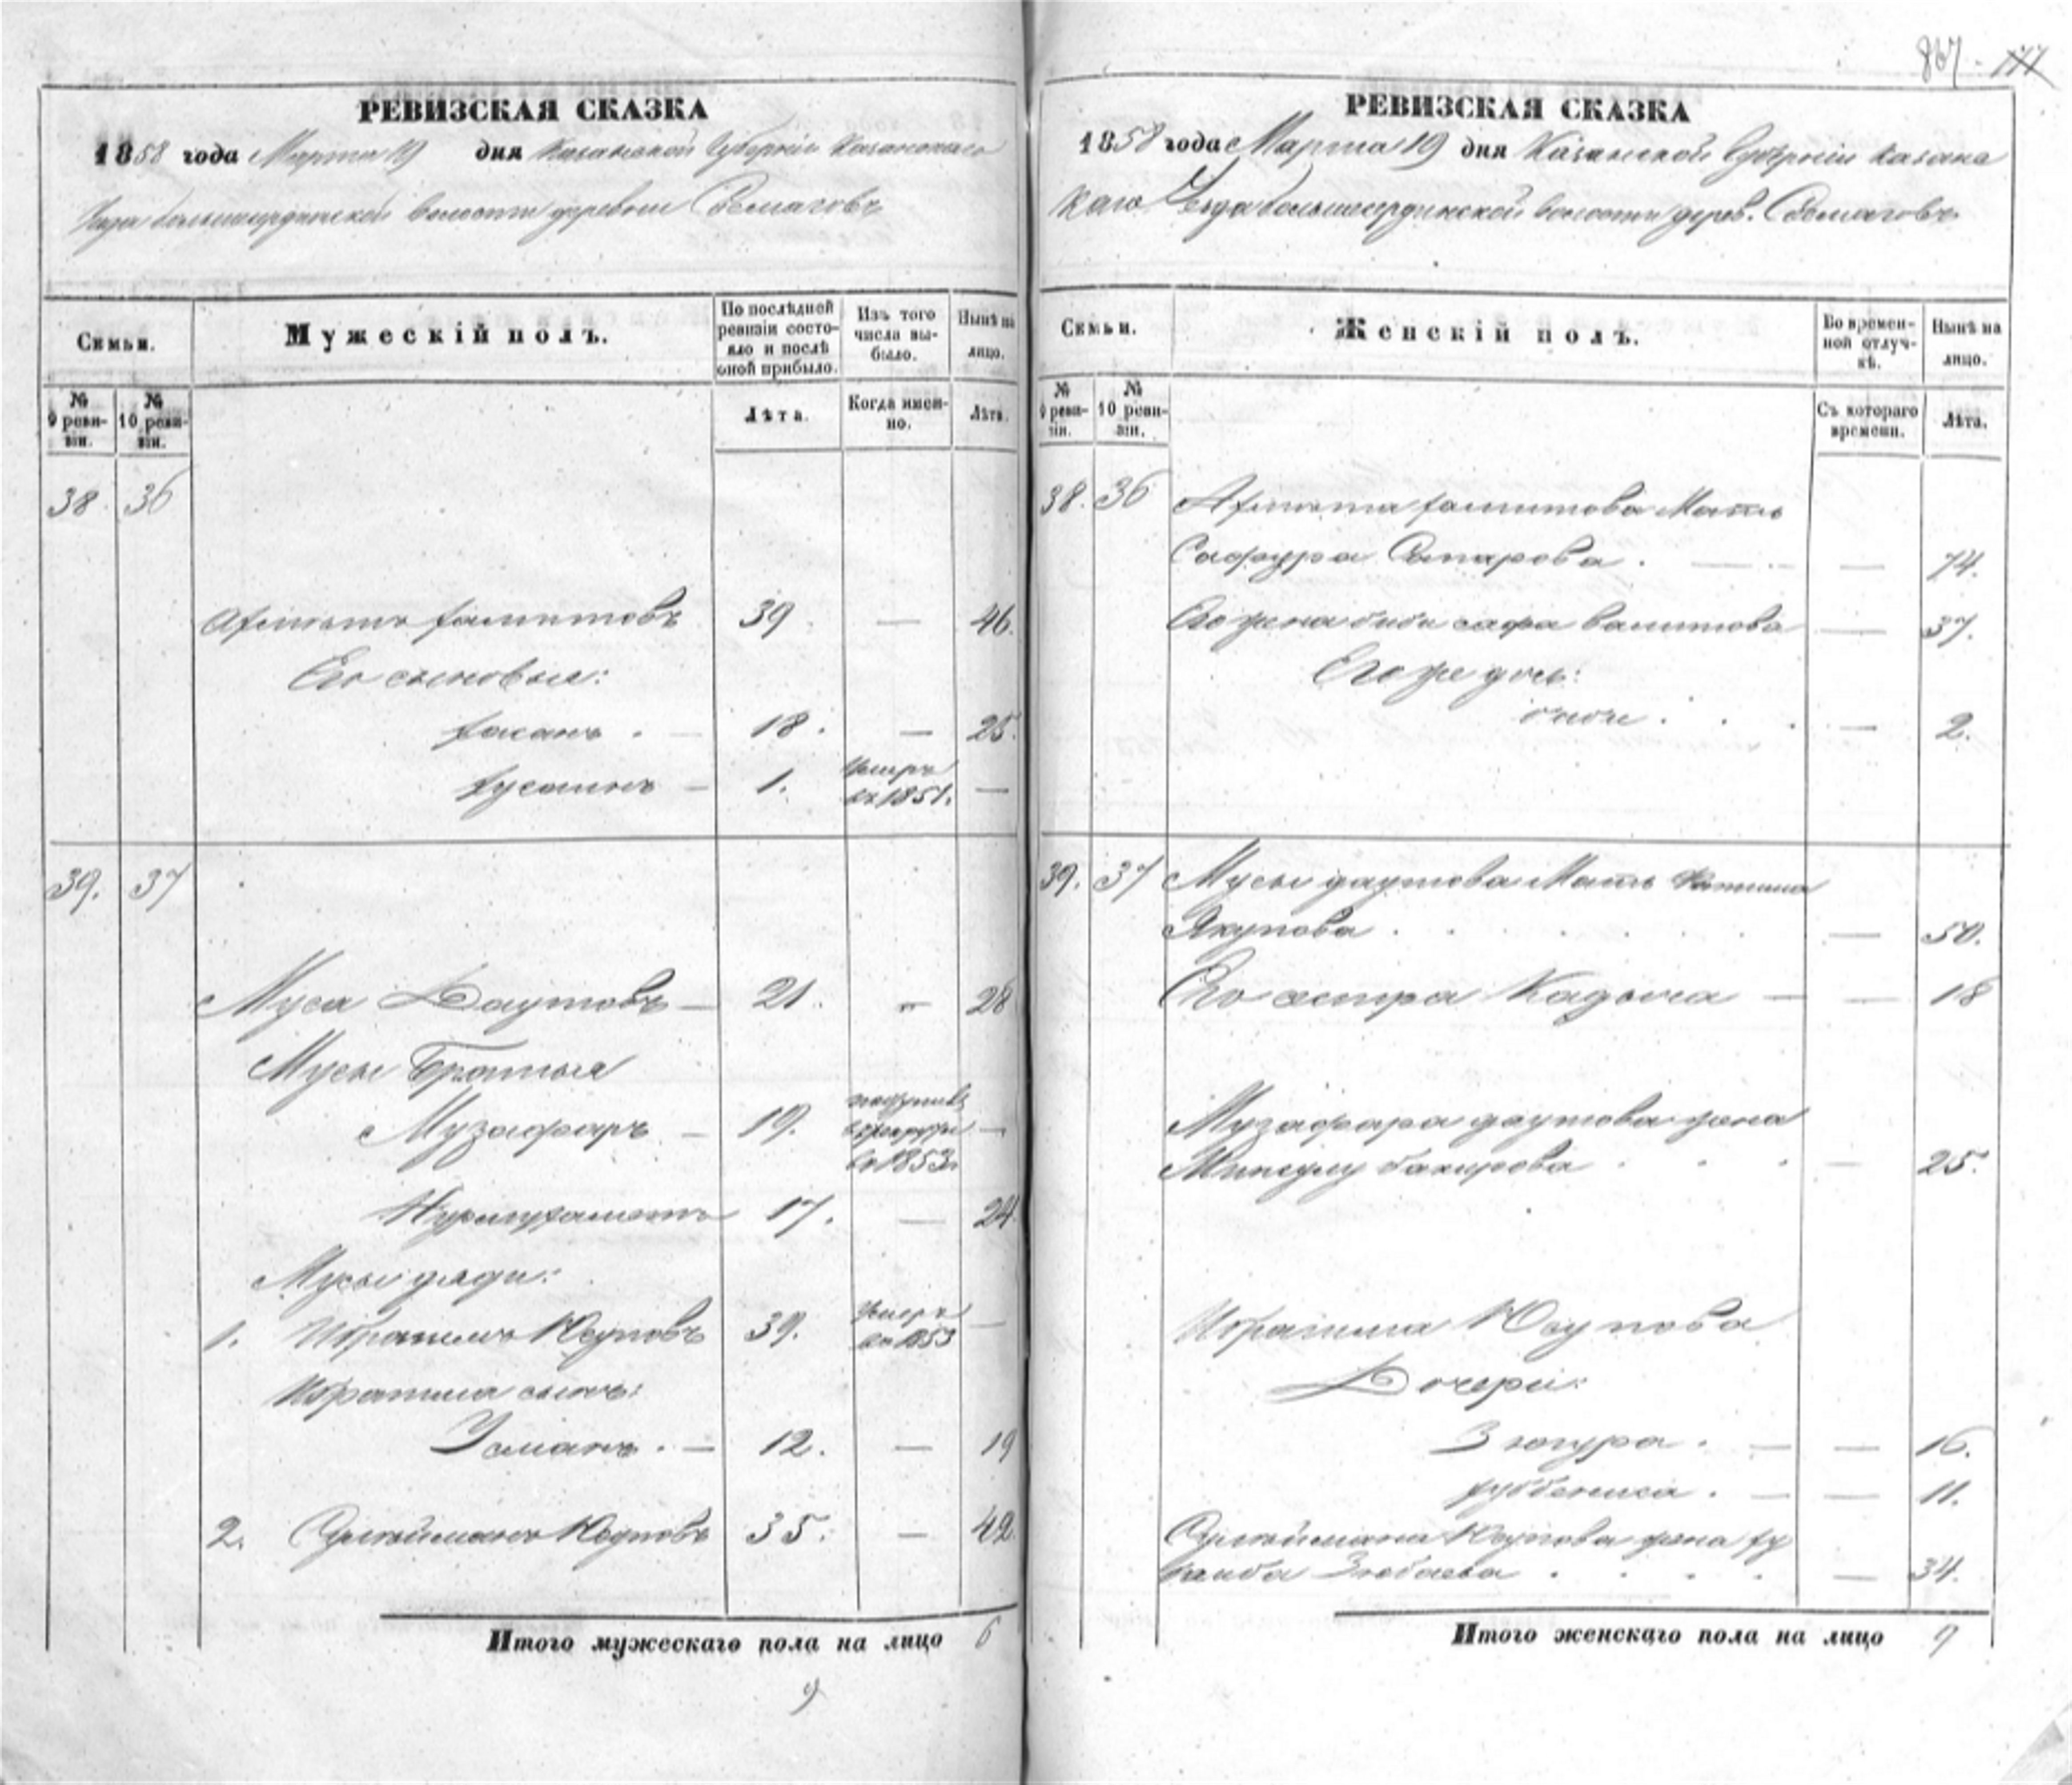 867. 177
РЕВИЗСКАЯ СКАЗКА
1858 года Марта 19 дня Казанской Губерніи Казанскаго
Уезда большеординской Волости деревни
Семьи.
Мужескій полъ.
По послѣдней ревизіи состояло и послѣ оной прибыло.
Изъ того числа выбыло.
Нынѣ на лицо.
№ 9 ревизіи.
№ 10 ревизіи.
Лѣта.
Когда именно.
Лѣта.
38. 36
39 — 46.
Его сыновья:
хасанъ . — 18. — 25.
хусаинъ — 1. Умеръ въ 1851. —
39. 37
Муса Даутовъ — 21. „ 28
Мусы Братья
Музафаръ — 19. въ рекруты въ 1853 —
Нурмухаметъ 17. — 24.
Мусы дяди:
1. Ибрагимъ Юсуповъ 39. Умеръ въ 1853 —
Ибрагима сынъ:
Усманъ . — 12. — 19
2. Сулейманъ Юсуповъ 35. — 42
Итого мужескаго пола на лицо 6
9
РЕВИЗСКАЯ СКАЗКА
1858 года Марта 19 дня Казанской Губерніи Казанс
каго Уезда большеординской волости дерев.
Семьи.
Женскій полъ.
Во временной отлучкѣ.
Нынѣ на лицо.
№ 9 ревизіи.
№ 10 ревизіи.
Съ котораго времени.
Лѣта.
38. 36 Мать
Сафура . — 74.
Его жена биби сафа валитова — 37.
Его же дочь:
биби . . . — 2.
39. 37 Мусы даутова Мать Фатима
Якупова . . . — 50.
Его сестра Кадыча — — 18
Музафара даутова жена
бакирова . . . — 25.
Ибрагима Юсупова
Дочери:
Зюгура . — — 16.
. — — 11.
Сулеймана Юсупова жена ху
. . . . — 34.
Итого женскаго пола на лицо 9